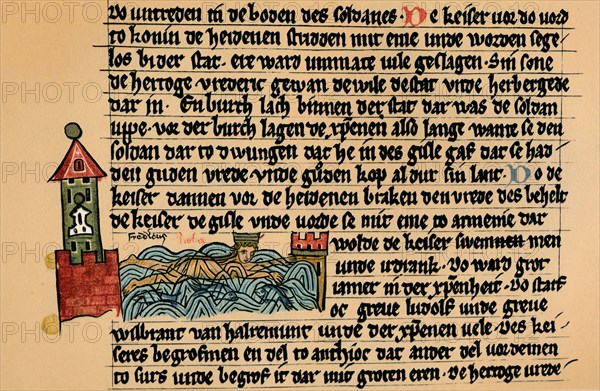 vo untreden in de boden des soldanes. De keiser vor do vord
to konin de heidenen stridden mit eme unde worden sege
los bi der stat. ere ward unmate vile geslagen. Sin sone
de hertoge vrederic gewan de wile de stat unde herbergede
dar in. En burch lach binnen der stat dar was de soldan
uppe. vor der burch lagen de xpenen also lange wante se den
soldan dar to dwungen dat he in des gisle gaf dat se had
den guden vrede. unde guden kop al dur sin lant. Do de
keiser dannen vor de heidenen braken den vrede des behelt
de keiser de gisle unde vorde se mit eme to armenie dar
Fredicus
wolde de keiser swemmen
unde irdrank. Do ward grot
iamer in der xpenheit. Do starf
oc greve ludolf unde greve
wilbrant van halremunt unde der xpenen vele. Des kei
seres begrofmen en del to anthioc dat ander del vordemen
to surs unde begrof it dar mit groten eren. De hertoge vrede